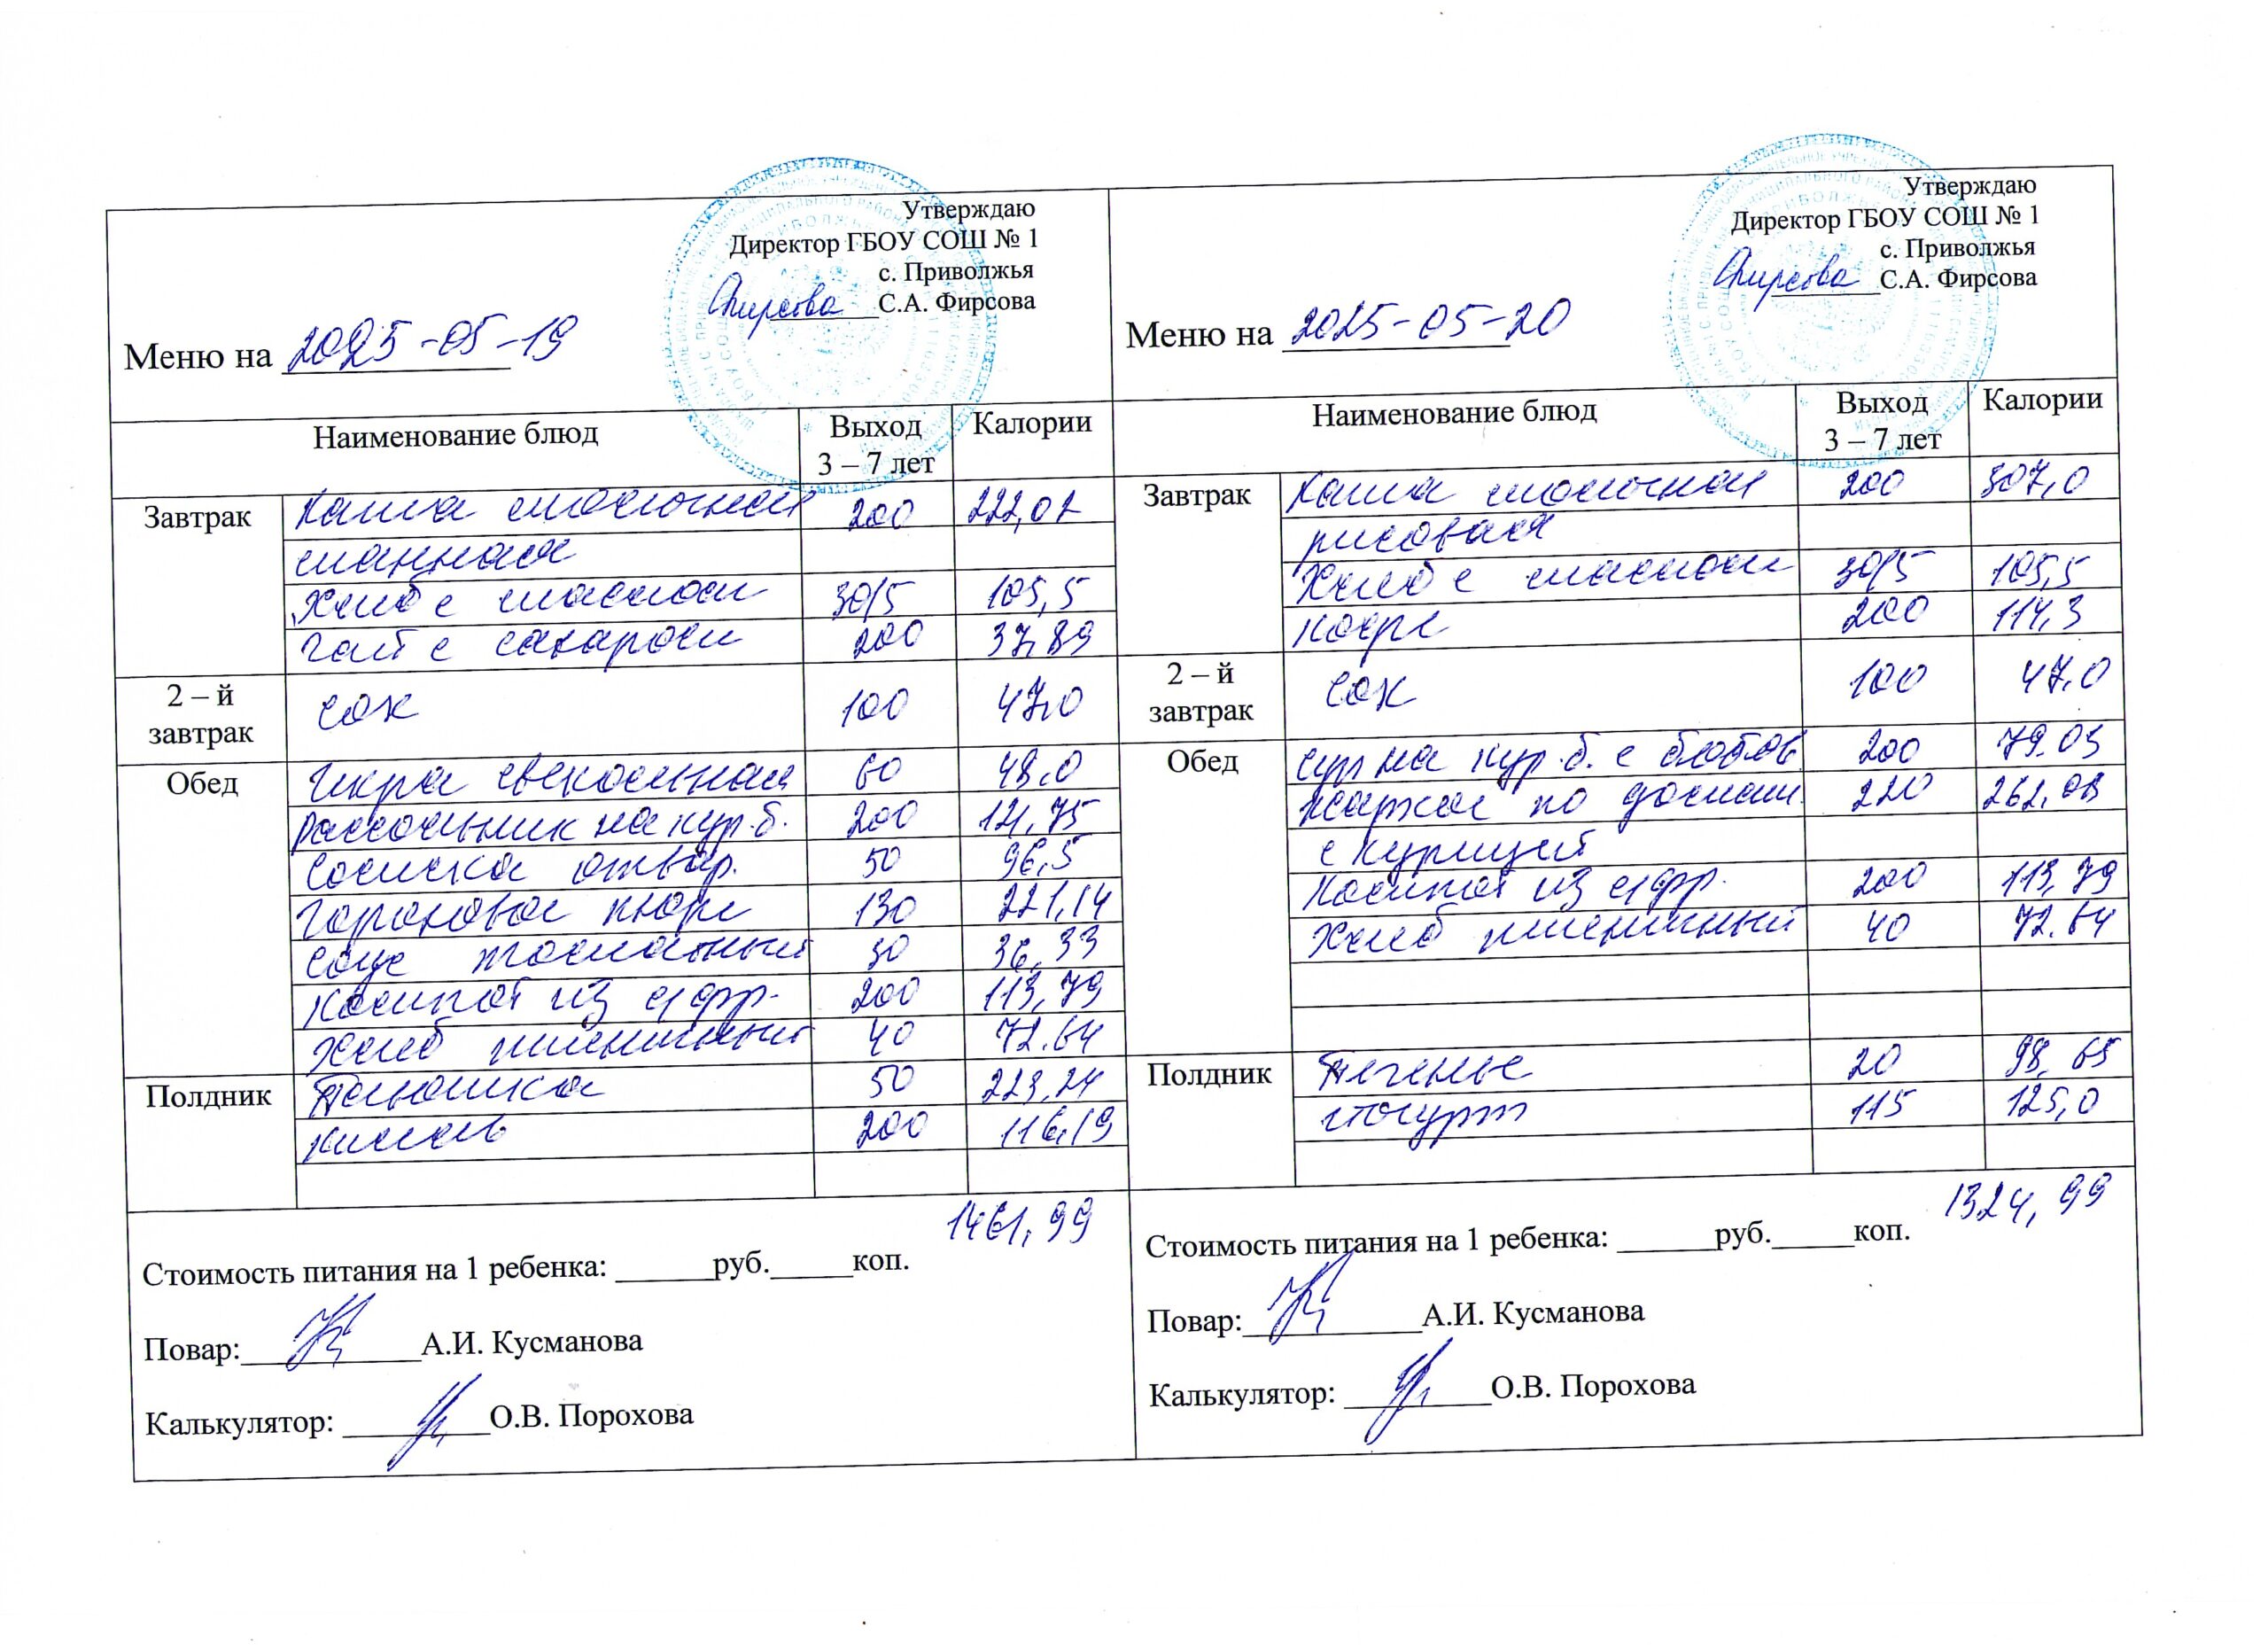 Утверждаю
Директор ГБОУ СОШ № 1
с. Приволжья
Фирсова С.А. Фирсова
Меню на 2025-05-19
Наименование блюд Выход 3 – 7 лет Калории
Завтрак Каша молочная 200 222,02
манная
Хлеб с маслом 30/5 105,5
Чай с сахаром 200 37,89
2 – й завтрак сок 100 47,0
Обед Икра свекольная 60 48,0
Рассольник на кур.б. 200 121,75
Сосиска отвар. 50 96,5
Гороховое пюре 130 221,14
Соус томатный 30 36,33
Компот из с/фр. 200 113,79
Хлеб пшеничный 40 72.64
Полдник 50 223,24
кисель 200 116,19
1461,99
Стоимость питания на 1 ребенка: ______руб._____коп.
Повар:___________А.И. Кусманова
Калькулятор: _________О.В. Порохова
Утверждаю
Директор ГБОУ СОШ № 1
с. Приволжья
Фирсова С.А. Фирсова
Меню на 2025-05-20
Наименование блюд Выход 3 – 7 лет Калории
Завтрак Каша молочная 200 307,0
рисовая
Хлеб с маслом 30/5 105,5
кофе 200 114,3
2 – й завтрак сок 100 47.0
Обед суп на кур.б. с бобов. 200 79.03
Жаркое по домаш. 220 262,08
с курицей
Компот из с/фр. 200 113,79
Хлеб пшеничный 40 72.64
Полдник Печенье 20 98,65
йогурт 115 125,0
1324,99
Стоимость питания на 1 ребенка: ______руб._____коп.
Повар:___________А.И. Кусманова
Калькулятор: _________О.В. Порохова